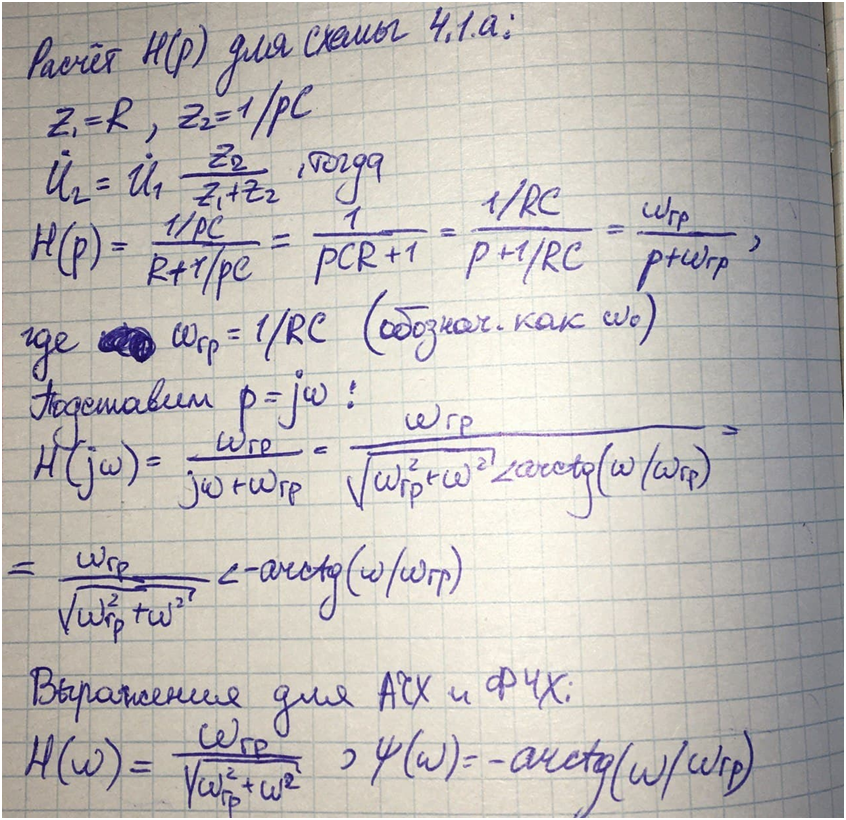 Расчёт H(p) для схемы 4.1.а:
Z₁=R, Z₂=1/pC
U̇₂ = U̇₁ Z₂/(Z₁+Z₂), тогда
H(p) = (1/pC)/(R+1/pC) = 1/(pCR+1) = (1/RC)/(p+1/RC) = ωгр/(p+ωгр),
где ωгр = 1/RC (обознач. как ω₀)
Подставим p=jω:
H(jω) = ωгр/(jω+ωгр) = ωгр/(√(ωгр²+ω²) ∠arctg(ω/ωгр)) =
= ωгр/√(ωгр²+ω²) ∠-arctg(ω/ωгр)
Выражения для АЧХ и ФЧХ:
H(ω) = ωгр/√(ωгр²+ω²), Ψ(ω) = -arctg(ω/ωгр)